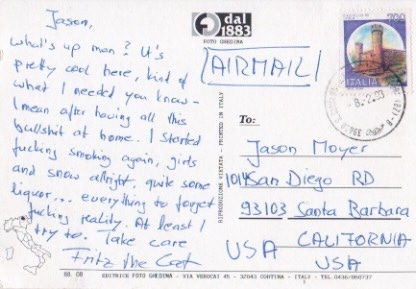 Jason,
what's up man? It's
pretty cool here, kind of
what I needed you know -
I mean after having all this
bullshit at home. I started
fucking smoking again, girls
and snow allright, quite some
liquor... everything to forget
fucking reality. At least I
try to. Take care
Fritz the Cat
dal
1883
FOTO GHEDINA
AIRMAIL
700
ITALIA
RIPRODUZIONE VIETATA - PRINTED IN ITALY
To:
Jason Moyer
1014 San Diego RD
93103 Santa Barbara
USA CALIFORNIA
USA
EDITRICE FOTO GHEDINA - VIA VEROCAI 45 - 32043 CORTINA - ITALY - TEL.